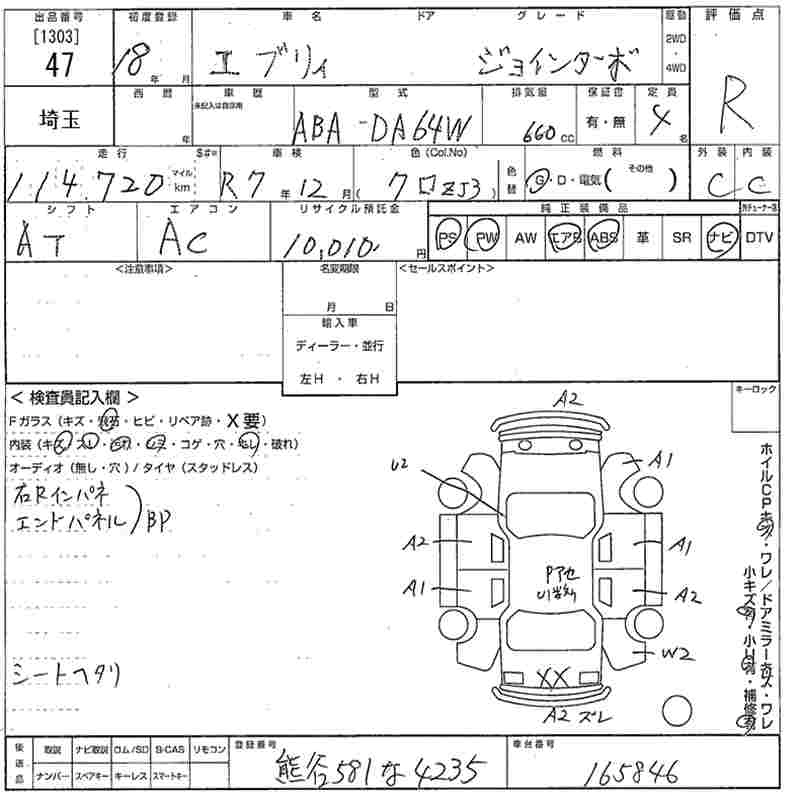 出品番号 初度登録 車名 ドア グレード 駆動 評価点
[1303]
47 18年 月 エブリィ ジョインターボ 2WD・4WD R
埼玉 西暦 年 車歴 未記入は自家用 型式 ABA-DA64W 排気量 660cc 保証書 有・無 定員 4名
走行 114,720 マイル km S#= 車検 R7年12月 色(Col.No) (クロZJ3) 色替 燃料 G・D・電気( その他 ) 外装 C 内装 C
シフト AT エアコン AC リサイクル預託金 10,010円 純正装備品
PS PW AW エアB ABS 革 SR ナビ DTV
<注意事項> 名変期限 <セールスポイント>
月 日
輸入車
ディーラー・並行
左H ・ 右H
<検査員記入欄> キーロック
Fガラス(キズ・飛石・ヒビ・リペア跡・X要)
内装(キズ・スレ・ ・ ・コゲ・穴・ ・破れ)
オーディオ(無し・穴)/タイヤ(スタッドレス)
右Rインパネ
エンドパネル)BP
シートヘタリ
A2
U2
A1
A2
A1
A1
A2
Pアセ
W2
XX
A2 ズレ
ホイルCPキズ・ワレ/ドアミラーキズ・ワレ
小キズ有・小U有・補修有
後送品 取説 ナビ取説 ロム/SD S-CAS リモコン
ナンバー スペアキー キーレス スマートキー
登録番号 熊谷581な4235
車台番号 165846